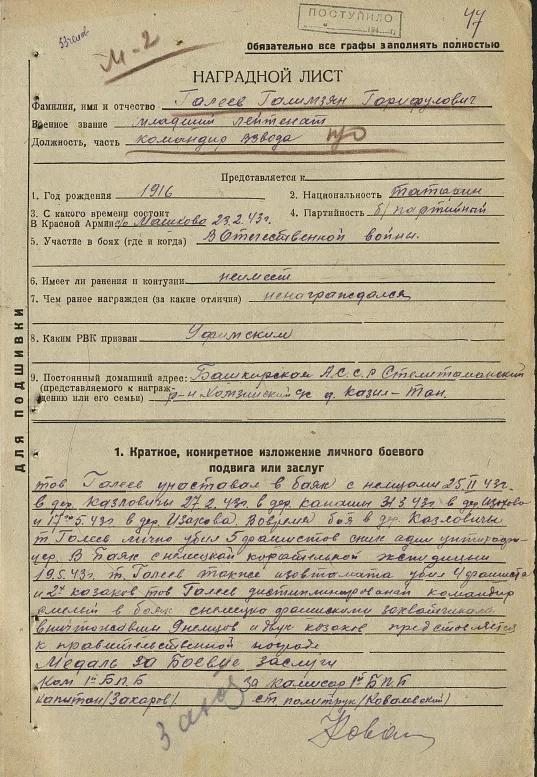 ПОСТУПИЛО
47
М-2
Обязательно все графы заполнять полностью
НАГРАДНОЙ ЛИСТ
Фамилия, имя и отчество Галеев Галимзян Гарифулович
Военное звание младший лейтенат
Должность, часть командир взвода
Представляется к
1. Год рождения 1916
2. Национальность татарин
3. С какого времени состоит
В Красной Армии Машково 23.2.43г.
4. Партийность б/партийный
5. Участие в боях (где и когда) В Отечественной войны.
6. Имеет ли ранения и контузии неимеет
7. Чем ранее награжден (за какие отличия) ненаграждался
8. Каким РВК призван Уфимским
9. Постоянный домашний адрес: Башкирской А.С.С.Р Стелитаманский
(представляемого к награж-
дению или его семьи) р-н с/с д. Казил-Тан.
ДЛЯ ПОДШИВКИ
1. Краткое, конкретное изложение личного боевого
подвига или заслуг
тов Галеев участвовал в баях с немцами 25 II 43г.
в дер. Казловичы 27.2.43г. в дер. 31.3.43г. в дер
и 17го 5.43г в дер. Изакова. Вовремя боя в дер. Казловичы
т. Галеев лично убил 5 фрашистов адин унтирафи-
цер. В Баях с немецкой корательной экспедицыи
19.5.43г. т. Галеев также изовтомата убил 4 фрашиста
и 2х казаков тов Галеев дистиплинированай командир
смелый в баях снемецко фрашискими захватчикам
9 немцов и двух козаков представляется
к правительственной нограде
Медаль За Боевые заслуги
Ком 1й БПБ
за комисор 1й БПБ
капитан /Захаров/
ст политрук /Ковалевский/